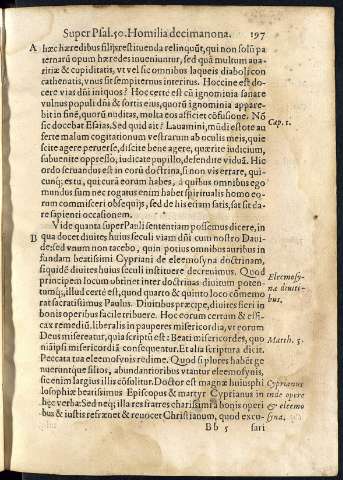 Super Psal. 50. Homilia decimanona. 197
A hæc hæredibus filijs restituenda relinquũt, qui non solũ pa-
ternarũ opum hæredes inveniuntur, sed quã multum aua-
ritiæ & cupiditatis, vt vel sic omnibus laqueis diaboli con
cathenatis, vnus sit sempiternus interitus. Hoccine est do-
cere vias dñi iniquos? Hoc certe est cũ ignominia sanare
vulnus populi dñi & fortis eius, quorũ ignominia appare-
bit in fine, quorũ nuditas, multa eos afficiet cõfusione. Nõ
sic docebat Esaias. Sed quid ait? Lauamini, mũdi estote au
Cap. 1.
ferte malum cogitationum vestrarum ab oculis meis, quie
scite agere peruerse, discite bene agere, quærite iudicium,
subuenite oppresso, iudicate pupillo, defendite viduã. Hic
ordo seruandus est in corũ doctrina, si non vis errare, qui-
cunq; estu, qui curã eorum habes, à quibus omnibus ego
mundus sum nec rogatus enim habet spiritualis homo eo-
rum commisceri obsequijs, sed de his etiam satis, sat sit da-
re sapienti occasionem.
Vide quanta super Pauli sententiam possemus dicere, in
B qua docet diuites huius seculi viam dñi cum nostro Daui-
de: sed vnum non tacebo, quin potius omnibus auribus in
fundam beatissimi Cypriani de eleemosyna doctrinam,
siquidẽ diuites huius seculi instituere decreuimus. Quod
principem locum obtinet inter doctrinas diuitum poten-
Eleemosy-
na diuiti-
bus.
tumq;, illud certè est, quod quarto & quinto loco cõmemo
rat sacratissimus Paulus. Diuitibus præcipe, diuites fieri in
bonis operibus facile tribuere. Hoc eorum certum & effi-
cax remediũ, liberalis in pauperes misericordia, vt eorum
Deus misereatur, quia scriptũ est: Beati misericordes, quo
Matth. 5.
niã ipsi misericordiã consequentur. Et alia scriptura dicit.
Peccata tua eleemosynis redime. Quod si plures habẽt ge
nuerintque filios, abundantioribus vtantur eleemosynis,
sic enim largius illis cõsulitur. Doctor est magnæ huius phi
losophiæ beatissimus Episcopus & martyr Cyprianus in
Cyprianus
inde opere
& eleemo
syna.
hęc verba: Sed neq; illa res fratres charissimi à bonis operi
bus & iustis refrænet & reuocet Christianum, quod excu-
Bb 5 sari